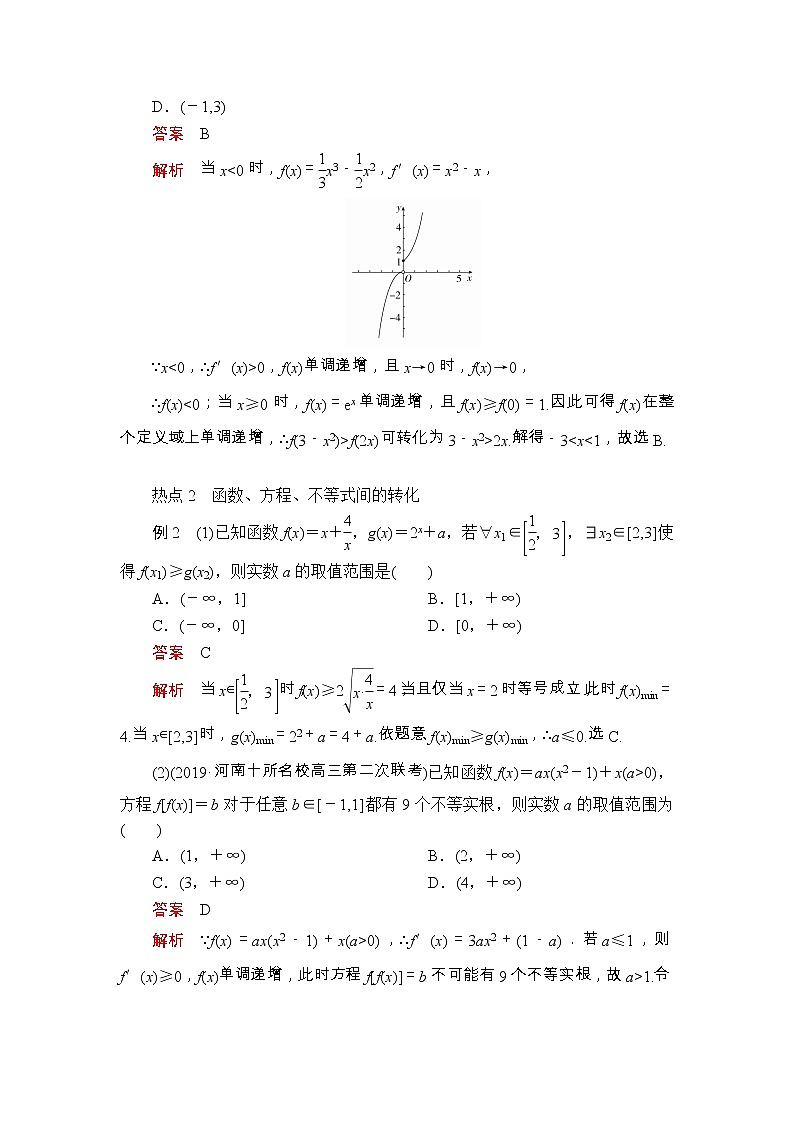 D．(－1,3)
答案　B
解析　当 x<0 时，f(x)＝\frac{1}{3}x³－\frac{1}{2}x²，f′(x)＝x²－x，
y
4
2
1
O
5
x
−2
−4
∵x<0，∴f′(x)>0，f(x)单调递增，且 x→0 时，f(x)→0，
∴f(x)<0；当 x≥0 时，f(x)＝eˣ 单调递增，且 f(x)≥f(0)＝1.因此可得 f(x)在整
个定义域上单调递增，∴f(3－x²)>f(2x)可转化为 3－x²>2x.解得－3<x<1，故选 B.
热点 2　函数、方程、不等式间的转化
例 2　(1)已知函数 f(x)＝x＋\frac{4}{x}，g(x)＝2ˣ＋a，若∀x₁∈[\frac{1}{2}，3]，∃x₂∈[2,3]使
得 f(x₁)≥g(x₂)，则实数 a 的取值范围是(　　)
A．(－∞，1]　B．[1，＋∞)
C．(－∞，0]　D．[0，＋∞)
答案　C
解析　当 x∈[\frac{1}{2}，3]时 f(x)≥2\sqrt{x·\frac{4}{x}}＝4 当且仅当 x＝2 时等号成立此时 f(x)min＝
4.当 x∈[2,3]时，g(x)min＝2²＋a＝4＋a.依题意 f(x)min≥g(x)min，∴a≤0.选 C.
(2)(2019·河南十所名校高三第二次联考)已知函数 f(x)＝ax(x²－1)＋x(a>0)，
方程 f[f(x)]＝b 对于任意 b∈[－1,1]都有 9 个不等实根，则实数 a 的取值范围为
(　　)
A．(1，＋∞)　B．(2，＋∞)
C．(3，＋∞)　D．(4，＋∞)
答案　D
解析　∵f(x)＝ax(x²－1)＋x(a>0)，∴f′(x)＝3ax²＋(1－a)．若 a≤1，则
f′(x)≥0，f(x)单调递增，此时方程 f[f(x)]＝b 不可能有 9 个不等实根，故 a>1.令